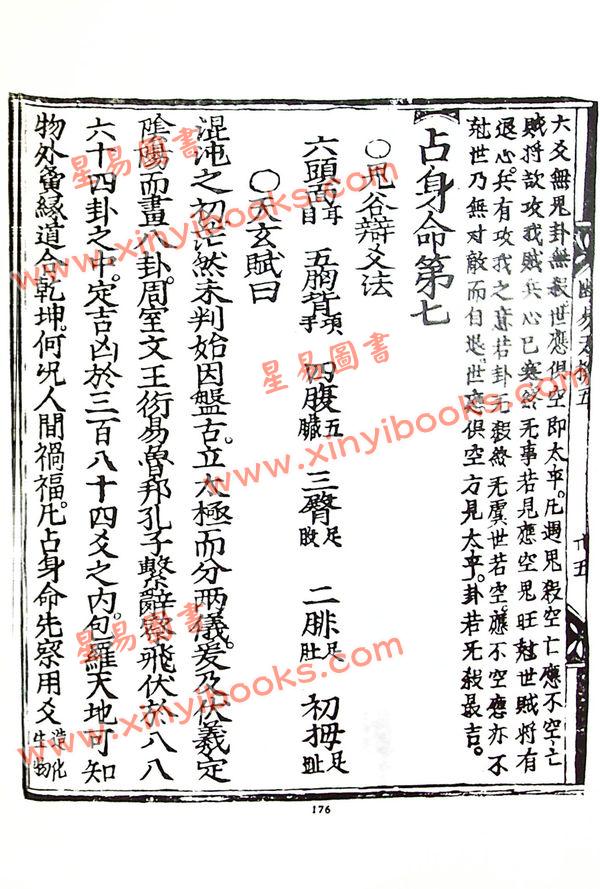 六爻無鬼卦無殺世應俱空即太平。凡遇鬼殺空亡應不空亡
賊將欲攻我賊兵心已寒終无事若見應空鬼旺尅世賊將有
退心。兵有攻我之意若卦无殺終无虞世若空。應不空應亦不
尅世乃無对敵而自退。世應俱空方見太平。卦若无殺最吉。
占身命第七
○鬼谷辯爻法
六頭面耳目 五胸背項手 四腹五臟 三臀足 二腓足肚 初拇足趾
○天玄賦曰
混沌之初茫然未判始因盤古立太極而分兩儀。爰及伏羲定
陰陽而畫八卦。周室文王衍易魯邦孔子繫辭。飛伏於八八
六十四卦之中。定吉凶於三百八十四爻之内。包羅天地可知
物外夤緣道合乾坤。何况人間禍福。凡占身命先察用爻造化生物
星易圖書
www.xinyibooks.com
星易圖書
www.xinyibooks.com
星易圖書
www.xinyibooks.com
176